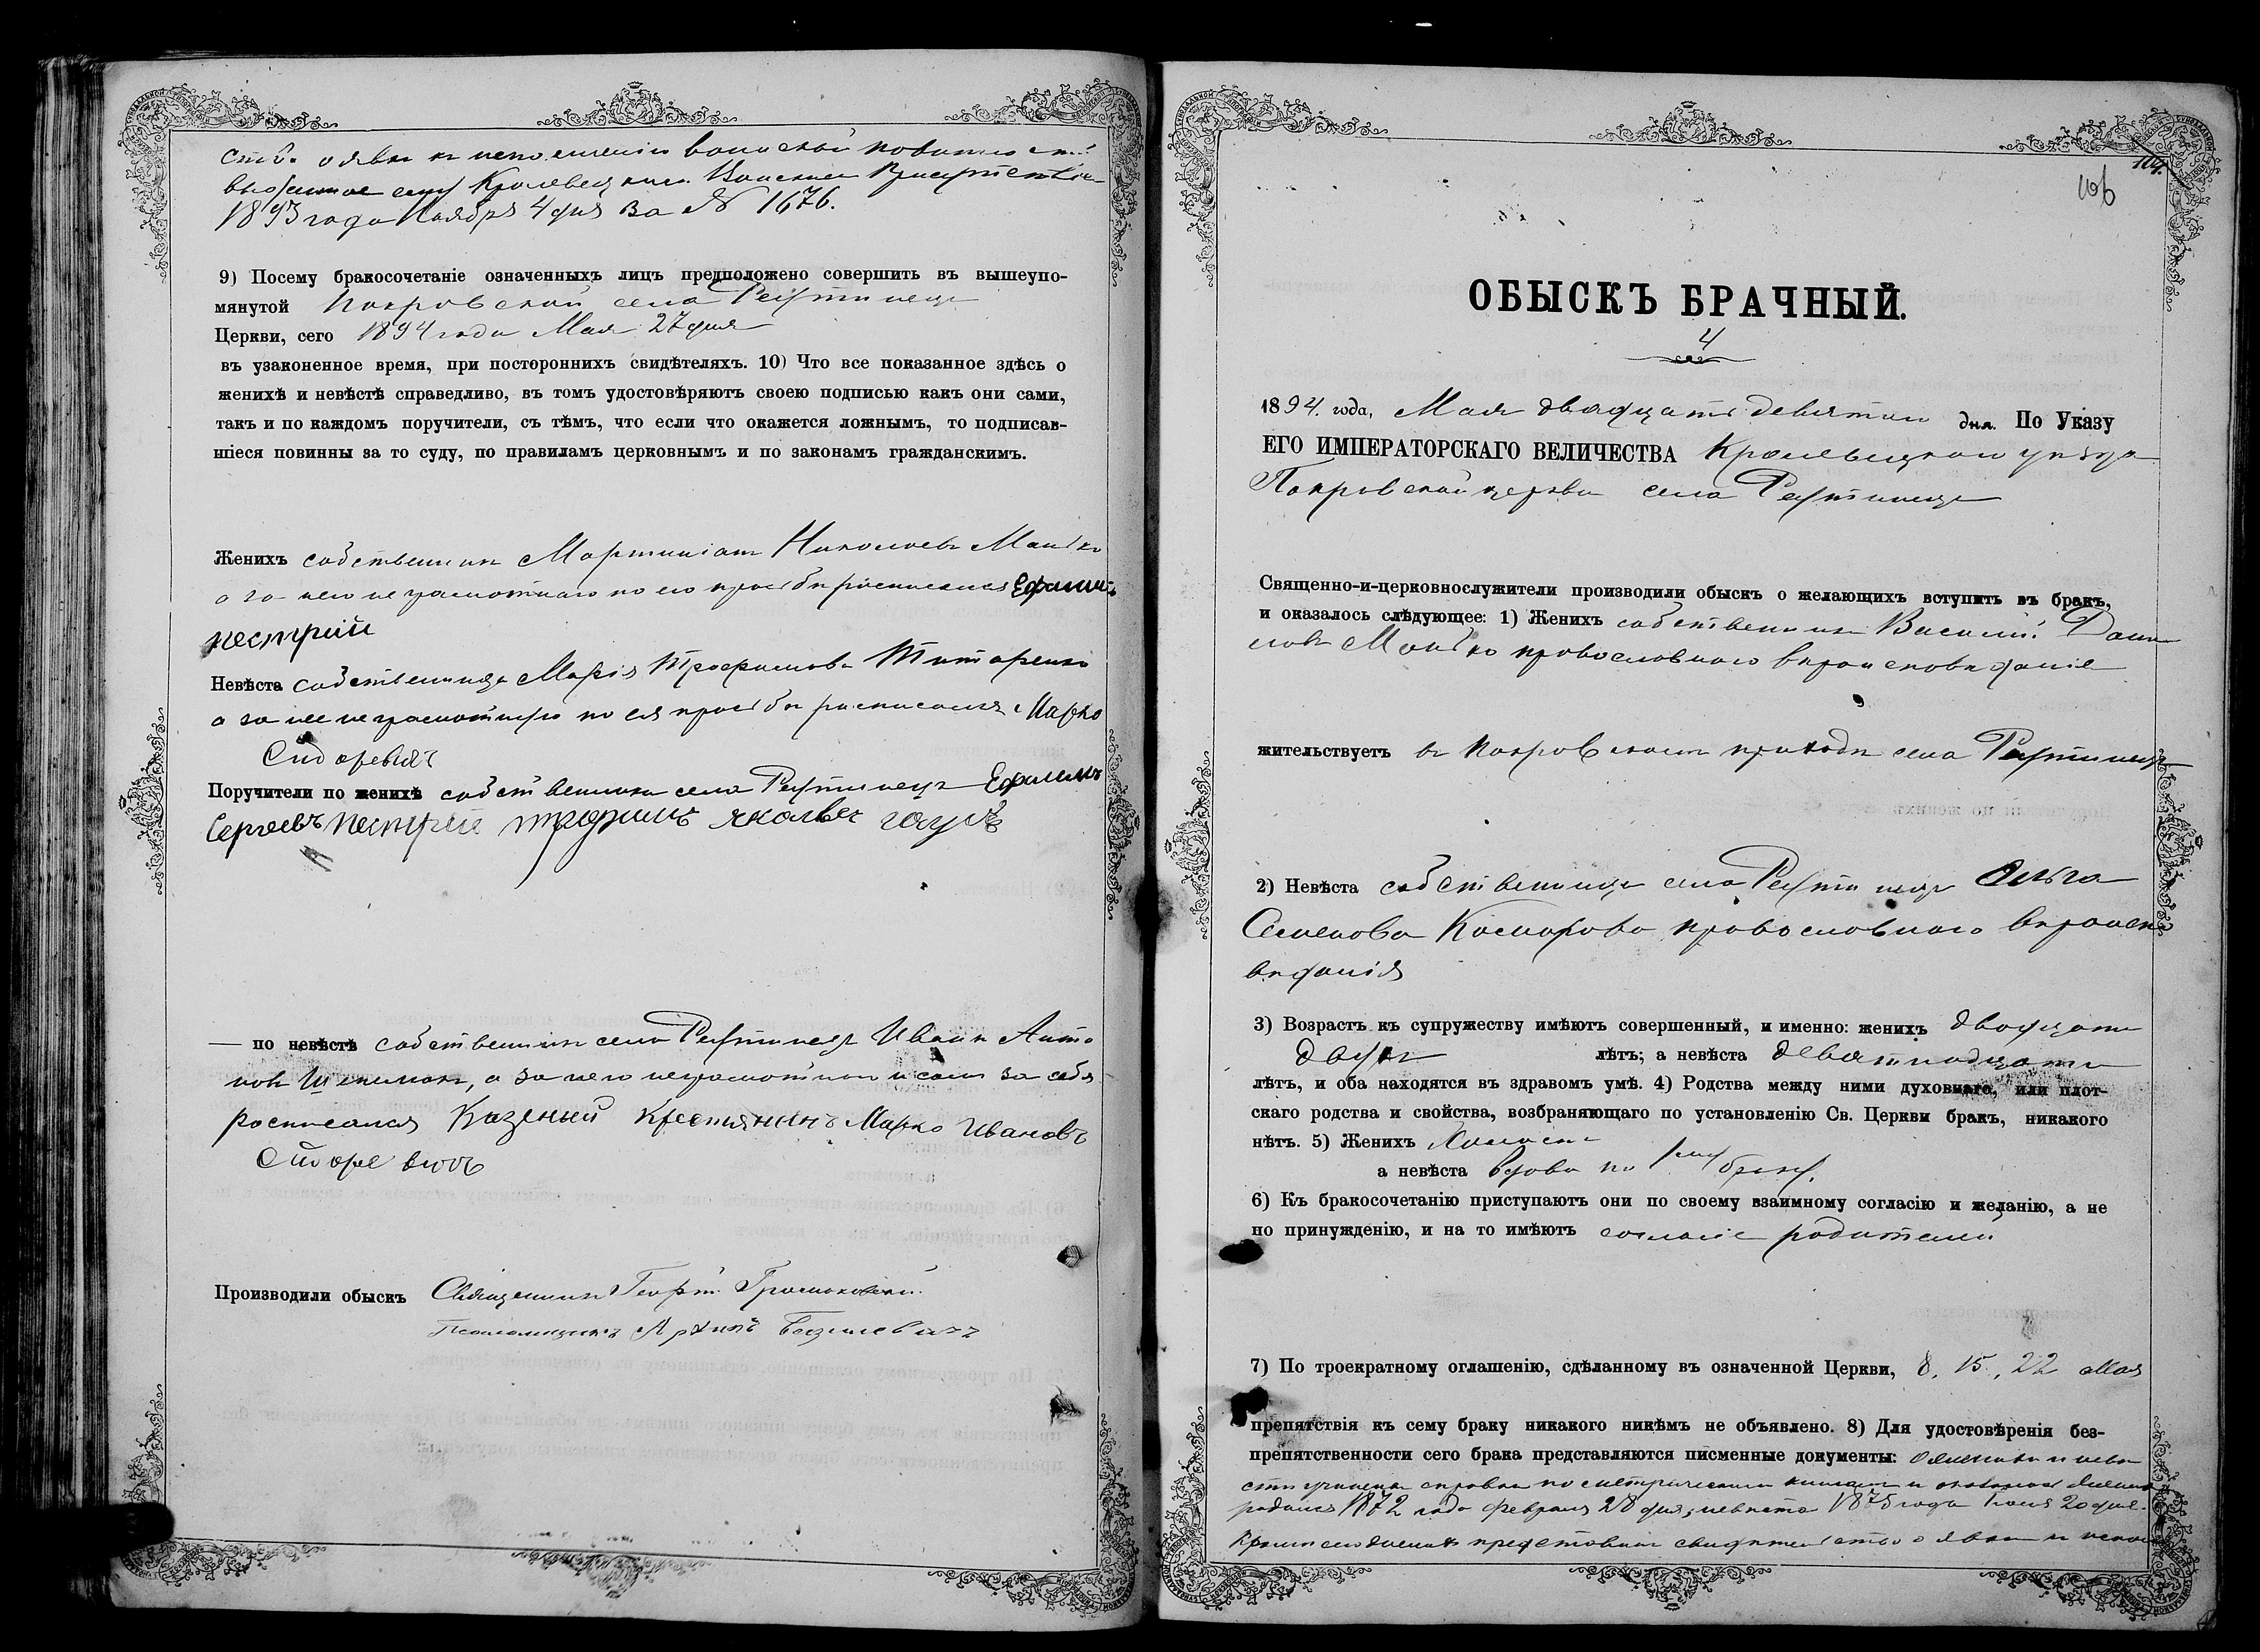 ство о явкѣ къ исполненію воинской повинности
выданное ему Кролевецкимъ Воинскимъ Присутствіемъ
1893 года Ноября 4 дня за № 1676.
9) Посему бракосочетаніе означенныхъ лицъ предположено совершить въ вышеупо-
мянутой Покровской села Реутинецъ
Церкви, сего 1894 года Мая 27 дня
въ узаконенное время, при постороннихъ свидѣтеляхъ. 10) Что все показанное здѣсь о
женихѣ и невѣстѣ справедливо, въ томъ удостовѣряютъ своею подписью какъ они сами,
такъ и по каждомъ поручители, съ тѣмъ, что если что окажется ложнымъ, то подписав-
шіеся повинны за то суду, по правиламъ церковнымъ и по законамъ гражданскимъ.
Женихъ собственникъ Мартиніанъ Николаевъ
а за него неграмотнаго по его просьбѣ расписался Ефимъ
пестрий
Невѣста собственница Марія Трофимова Титаренко
а за нее неграмотную по ея просьбѣ расписался Марко
Сидоревичъ
Поручители по женихѣ собственники села Реутинецъ Ефимъ
Сергѣевъ пестрій трофимъ яковлевъ
— по невѣстѣ собственникъ села Реутинецъ Иванъ Анто
новъ а за него неграмотнаго и самъ за себя
росписался Казенний крестьянинъ Марко Ивановъ
Сидоревичъ
Производили обыскъ Священникъ Георгій
Псаломщикъ Архипъ Базилевичъ
104.
106
ОБЫСКЪ БРАЧНЫЙ.
4
1894. года, Мая двадцать девятаго дня. По Указу
ЕГО ИМПЕРАТОРСКАГО ВЕЛИЧЕСТВА Кролевецкаго уѣзда
Покровской церкви села Реутинецъ
Священно-и-церковнослужители производили обыскъ о желающихъ вступить въ бракъ,
и оказалось слѣдующее: 1) Женихъ собственникъ Василій Дани
ловъ православнаго вѣроисповѣданія
жительствуетъ въ Покровскомъ приходѣ села Реутинецъ
2) Невѣста собственница села Реутинецъ Ольга
Семенова православнаго вѣроиспо
вѣданія
3) Возрастъ къ супружеству имѣютъ совершенный, и именно: женихъ двадцати
двухъ лѣтъ; а невѣста девятнадцати
лѣтъ, и оба находятся въ здравомъ умѣ. 4) Родства между ними духовнаго, или плот-
скаго родства и свойства, возбраняющаго по установленію Св. Церкви бракъ, никакого
нѣтъ. 5) Женихъ Холостъ
а невѣста Вдова по 1му браку.
6) Къ бракосочетанію приступаютъ они по своему взаимному согласію и желанію, а не
по принужденію, и на то имѣютъ согласіе родителей
7) По троекратному оглашенію, сдѣланному въ означенной Церкви, 8, 15, 22 Мая
препятствія къ сему браку никакого никѣмъ не объявлено. 8) Для удостовѣренія без-
препятственности сего брака представляются писменные документы: о женихѣ и невѣ
стѣ учинена справка по метрическимъ книгамъ и оказалось женихъ
родился 1872 года февраля 28 дня, невѣста 1875 года Іюля 20 дня.
Кромѣ сего женихъ представилъ свидѣтельство о явкѣ къ испол